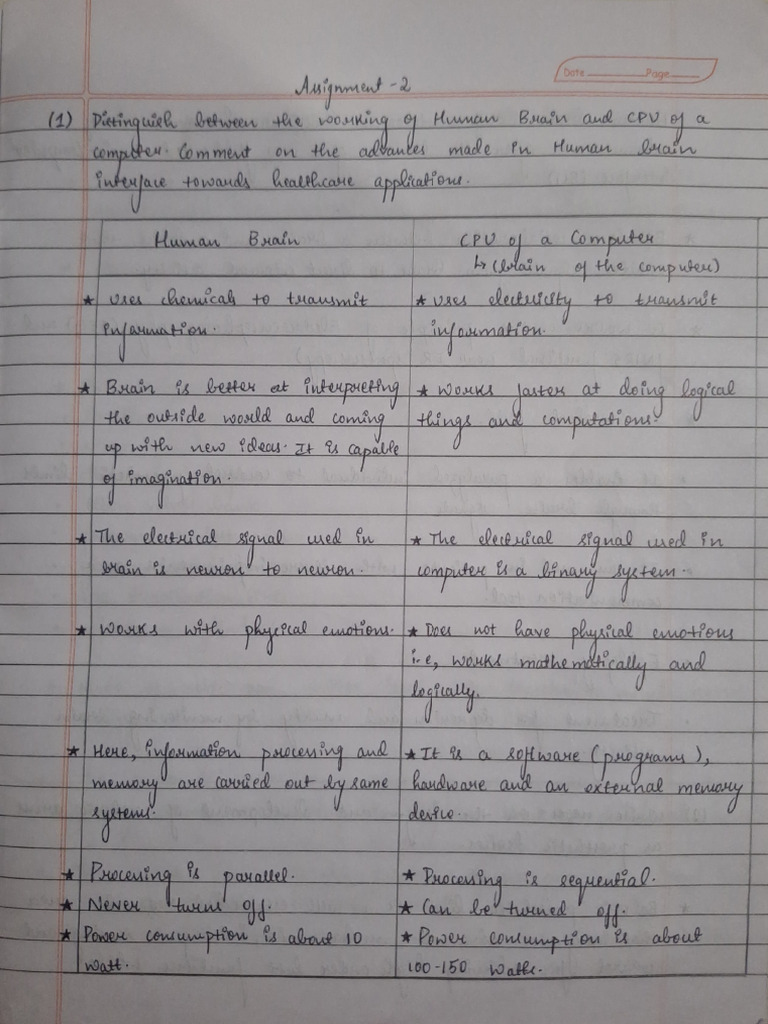 Date Page
Assignment - 2
(1) Distinguish between the working of Human Brain and CPU of a
computer. Comment on the advances made in Human brain
interface towards healthcare applications.
Human Brain
CPU of a Computer
↳ (brain of the computer)
★ uses chemicals to transmit
information.
★ uses electricity to transmit
information.
★ Brain is better at interpreting
the outside world and coming
up with new ideas. It is capable
of imagination.
★ Works faster at doing logical
things and computations.
★ The electrical signal used in
brain is neuron to neuron.
★ The electrical signal used in
computer is a binary system.
★ Works with physical emotions.
★ Does not have physical emotions
i.e, works mathematically and
logically.
★ Here, information processing and
memory are carried out by same
systems.
★ It is a software (programs),
hardware and an external memory
device.
★ Processing is parallel.
★ Processing is sequential.
★ Never turns off.
★ Can be turned off.
★ Power consumption is about 10
watt.
★ Power consumption is about
100-150 watts.